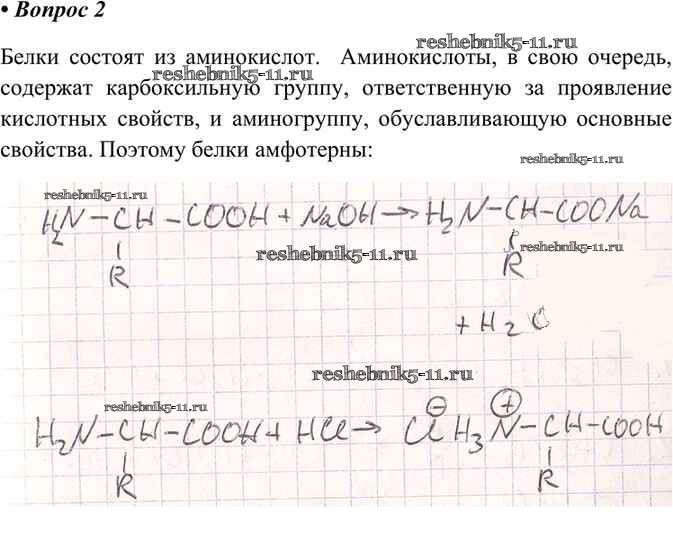 • Вопрос 2
reshebnik5-11.ru
Белки состоят из аминокислот. Аминокислоты, в свою очередь,
reshebnik5-11.ru
содержат карбоксильную группу, ответственную за проявление
кислотных свойств, и аминогруппу, обуславливающую основные
свойства. Поэтому белки амфотерны:
reshebnik5-11.ru
reshebnik5-11.ru
H₂N – CH – COOH + NaOH → H₂N – CH – COONa
reshebnik5-11.ru
reshebnik5-11.ru
R R
+ H₂O
reshebnik5-11.ru
reshebnik5-11.ru
H₂N – CH – COOH + HCl → Cl⊖ H₃N⊕ – CH – COOH
R R